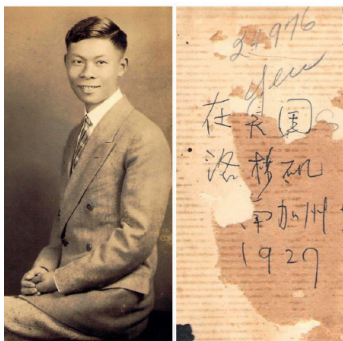 24976
Yew
在美国
洛杉矶
南加州
1927